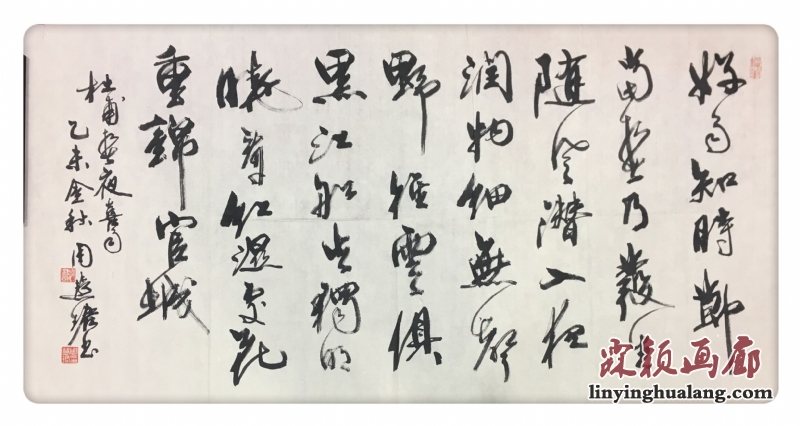 好雨知時節
當春乃發生
随風潜入夜
润物细無聲
野徑雲俱
黑江船火獨明
曉看红濕處花
重錦官城
杜甫春夜喜雨
乙未金秋周书
霖颖画廊
linyinghualang.com